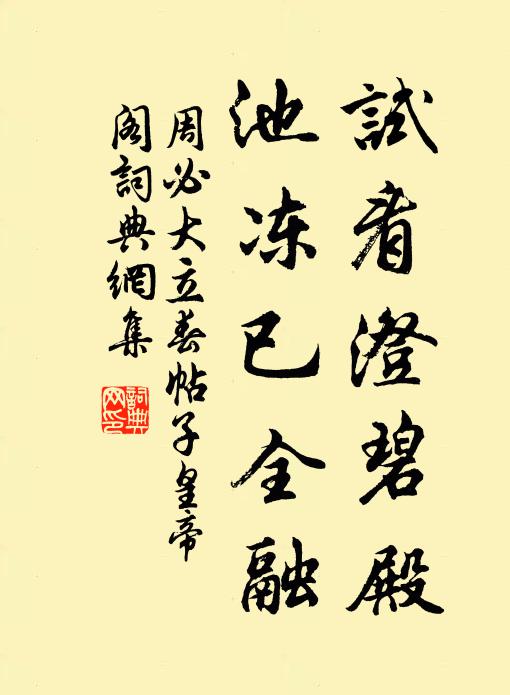 試看澄碧殿
池冻已全融
周必大立春帖子皇帝
阁詞典網集
詞典网印